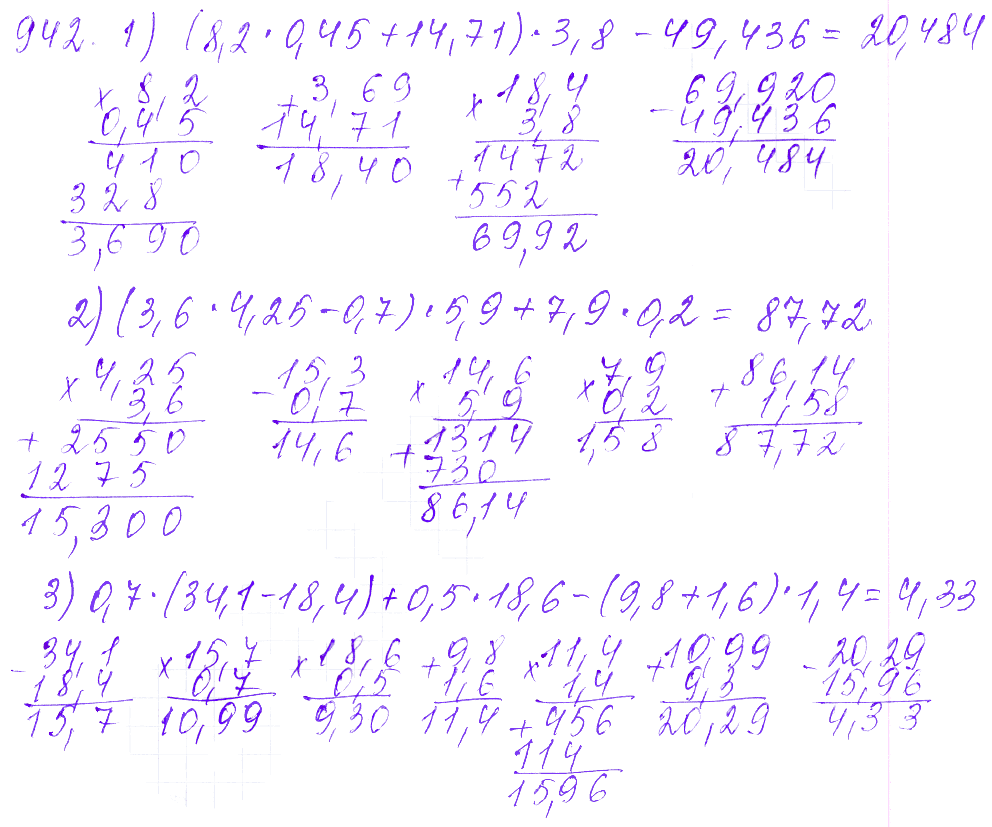 942. 1) (8,2 · 0,45 + 14,71) · 3,8 - 49,436 = 20,484
× 8,2 + 3,69 × 18,4 - 69,920
0,45 14,71 3,8 49,436
410 18,40 1472 20,484
328 + 552
3,690 69,92
2) (3,6 · 4,25 - 0,7) · 5,9 + 7,9 · 0,2 = 87,72
× 4,25 - 15,3 × 14,6 × 7,9 + 86,14
3,6 0,7 5,9 0,2 1,58
+ 2550 14,6 + 1314 1,58 87,72
1275 730
15,300 86,14
3) 0,7 · (34,1 - 18,4) + 0,5 · 18,6 - (9,8 + 1,6) · 1,4 = 4,33
- 34,1 × 15,7 × 18,6 + 9,8 × 11,4 + 10,99 - 20,29
18,4 0,7 0,5 1,6 1,4 9,3 15,96
15,7 10,99 9,30 11,4 + 456 20,29 4,33
114
15,96